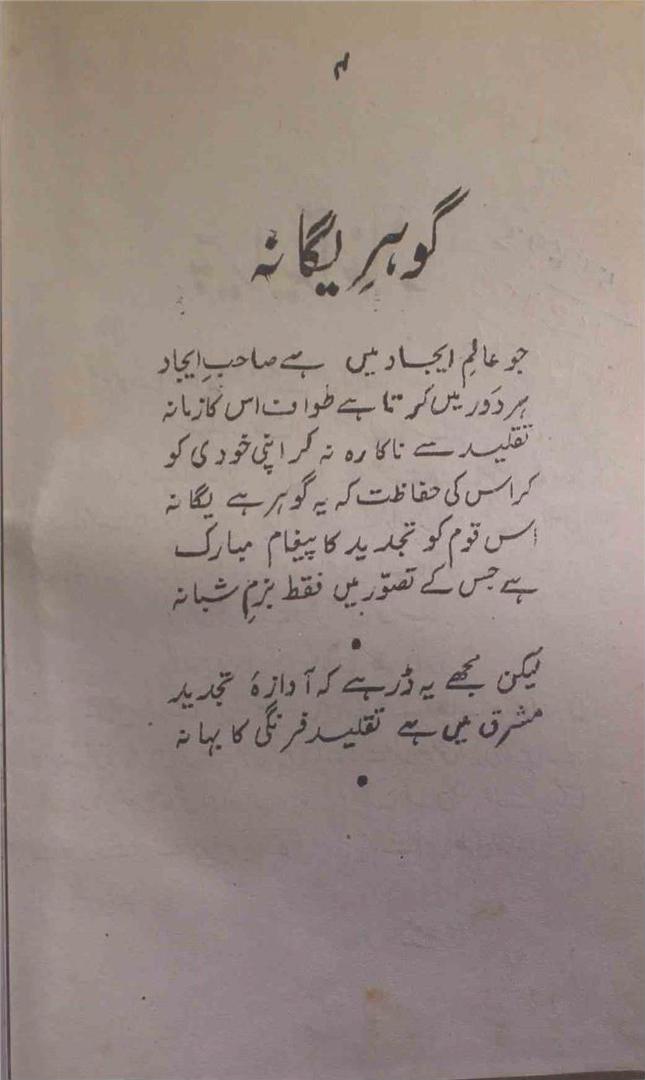 ۴
گوہرِ یگانہ
جو عالمِ ایجاد میں ہے صاحبِ ایجاد
ہر دَور میں کرتا ہے طواف اس کا زمانہ
تقلید سے ناکارہ نہ کر اپنی خودی کو
کر اس کی حفاظت کہ یہ گوہر ہے یگانہ
اس قوم کو تجدید کا پیغام مبارک
ہے جس کے تصوّر میں فقط بزمِ شبانہ
•
لیکن مجھے یہ ڈر ہے کہ آوازۂ تجدید
مشرق میں ہے تقلیدِ فرنگی کا بہانہ
•